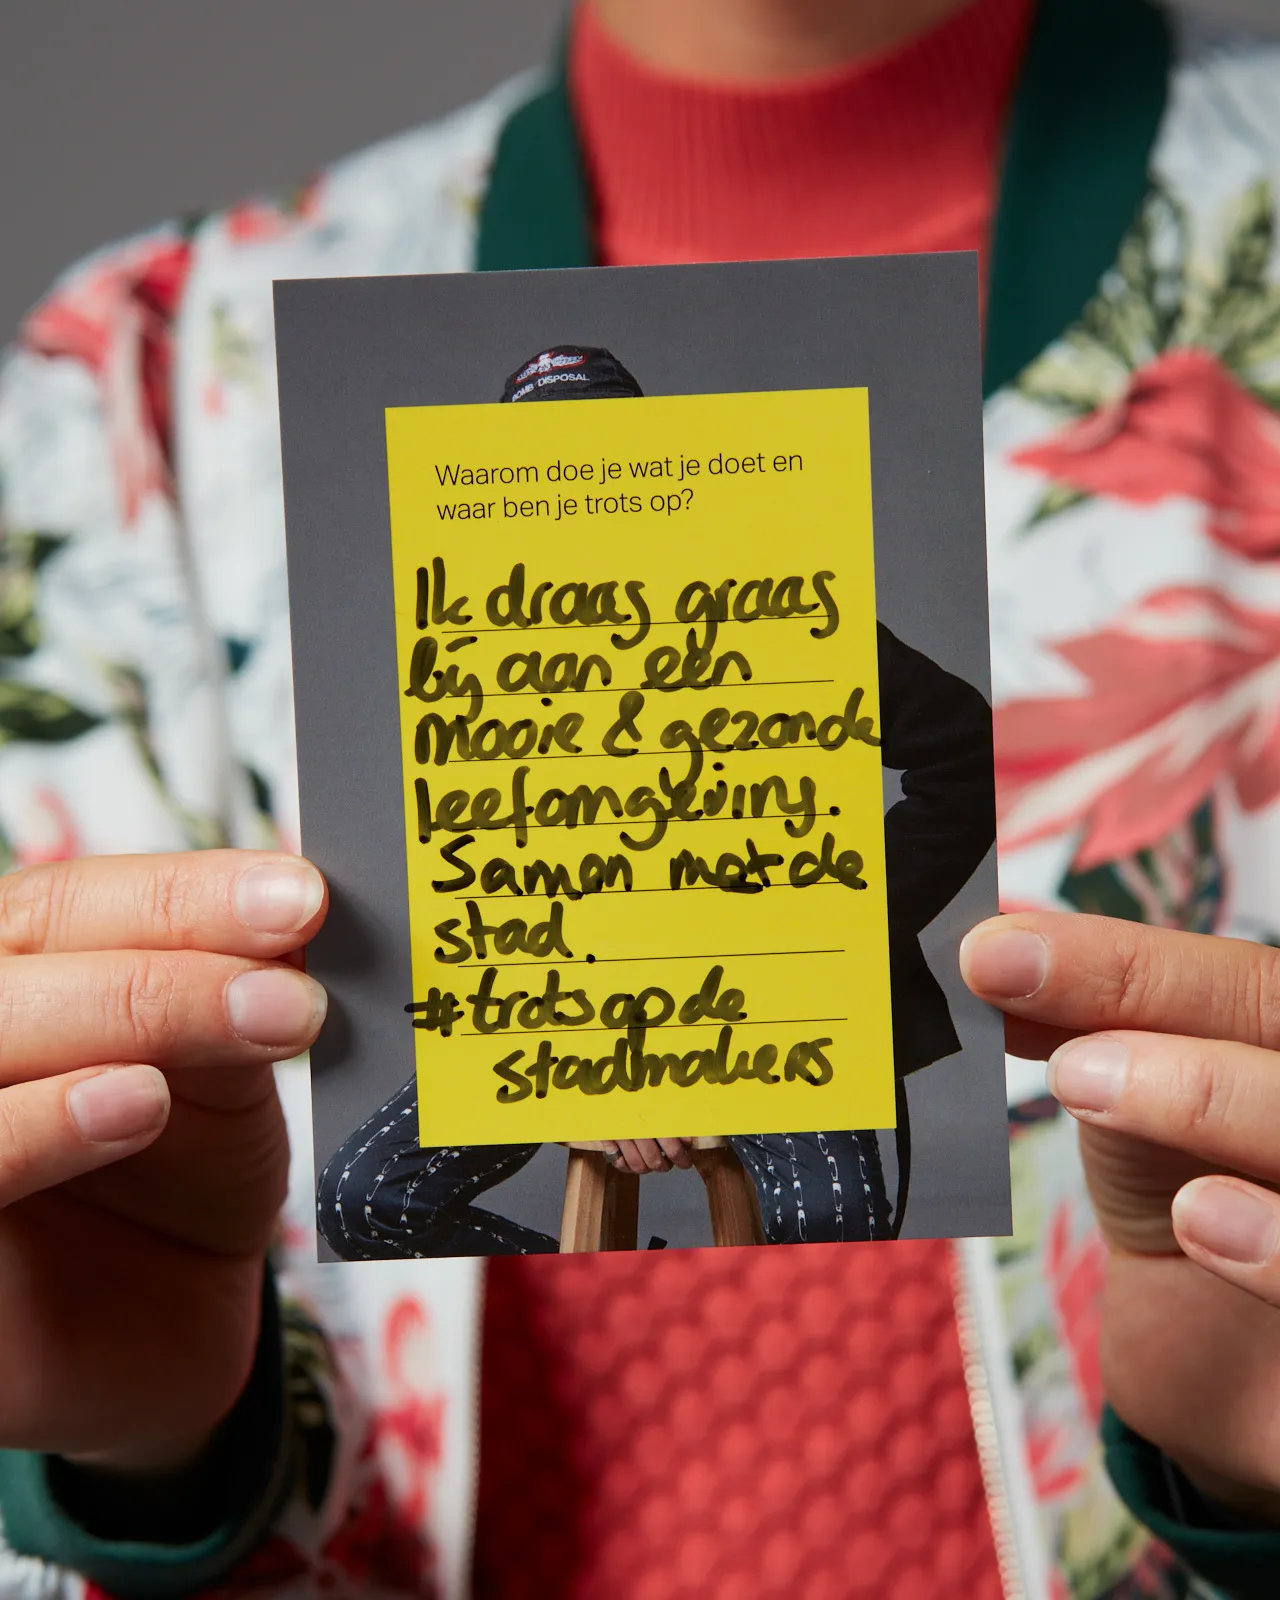 BOMB DISPOSAL
Waarom doe je wat je doet en
waar ben je trots op?
Ik draag graag
bij aan een
mooie & gezonde
leefomgeving.
Samen met de
stad.
#trotsopde
stadmakers